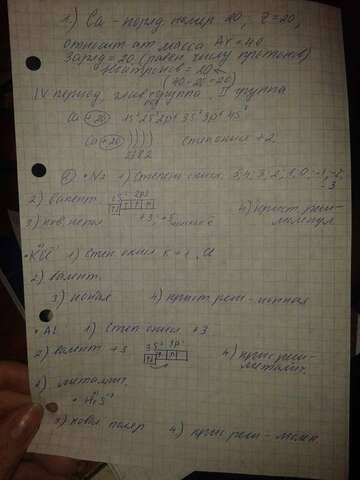 1) Ca - поряд. номер 20, Z=20,
относит. ат. масса Ar = 40
Заряд = 20 (равен числу протонов)
Нейтронов = 20
(40-20=20)
IV период, глав. группа, II группа
Ca +20 1s² 2s² 2p⁶ 3s² 3p⁶ 4s²
Ca +20 ) ) ) )
2 8 8 2
степ окисл +2
2) • N₂ 1) Степень окисл. 5, 4, 3, 2, 1, 0, -1, -2, -3
2) валент. 2s² 2p³
+3, +5
3) ков. непол
4) крист. реш -
молекул.
• KCl 1) Степ окисл K +
2) валент.
3) ионная 4) крист реш - ионная
• Al 1) Степ окисл +3
2) валент +3 3s² 3p¹
4) крис реш -
металлич.
металлич.
3) ковал поляр 4) крис реш - молек.